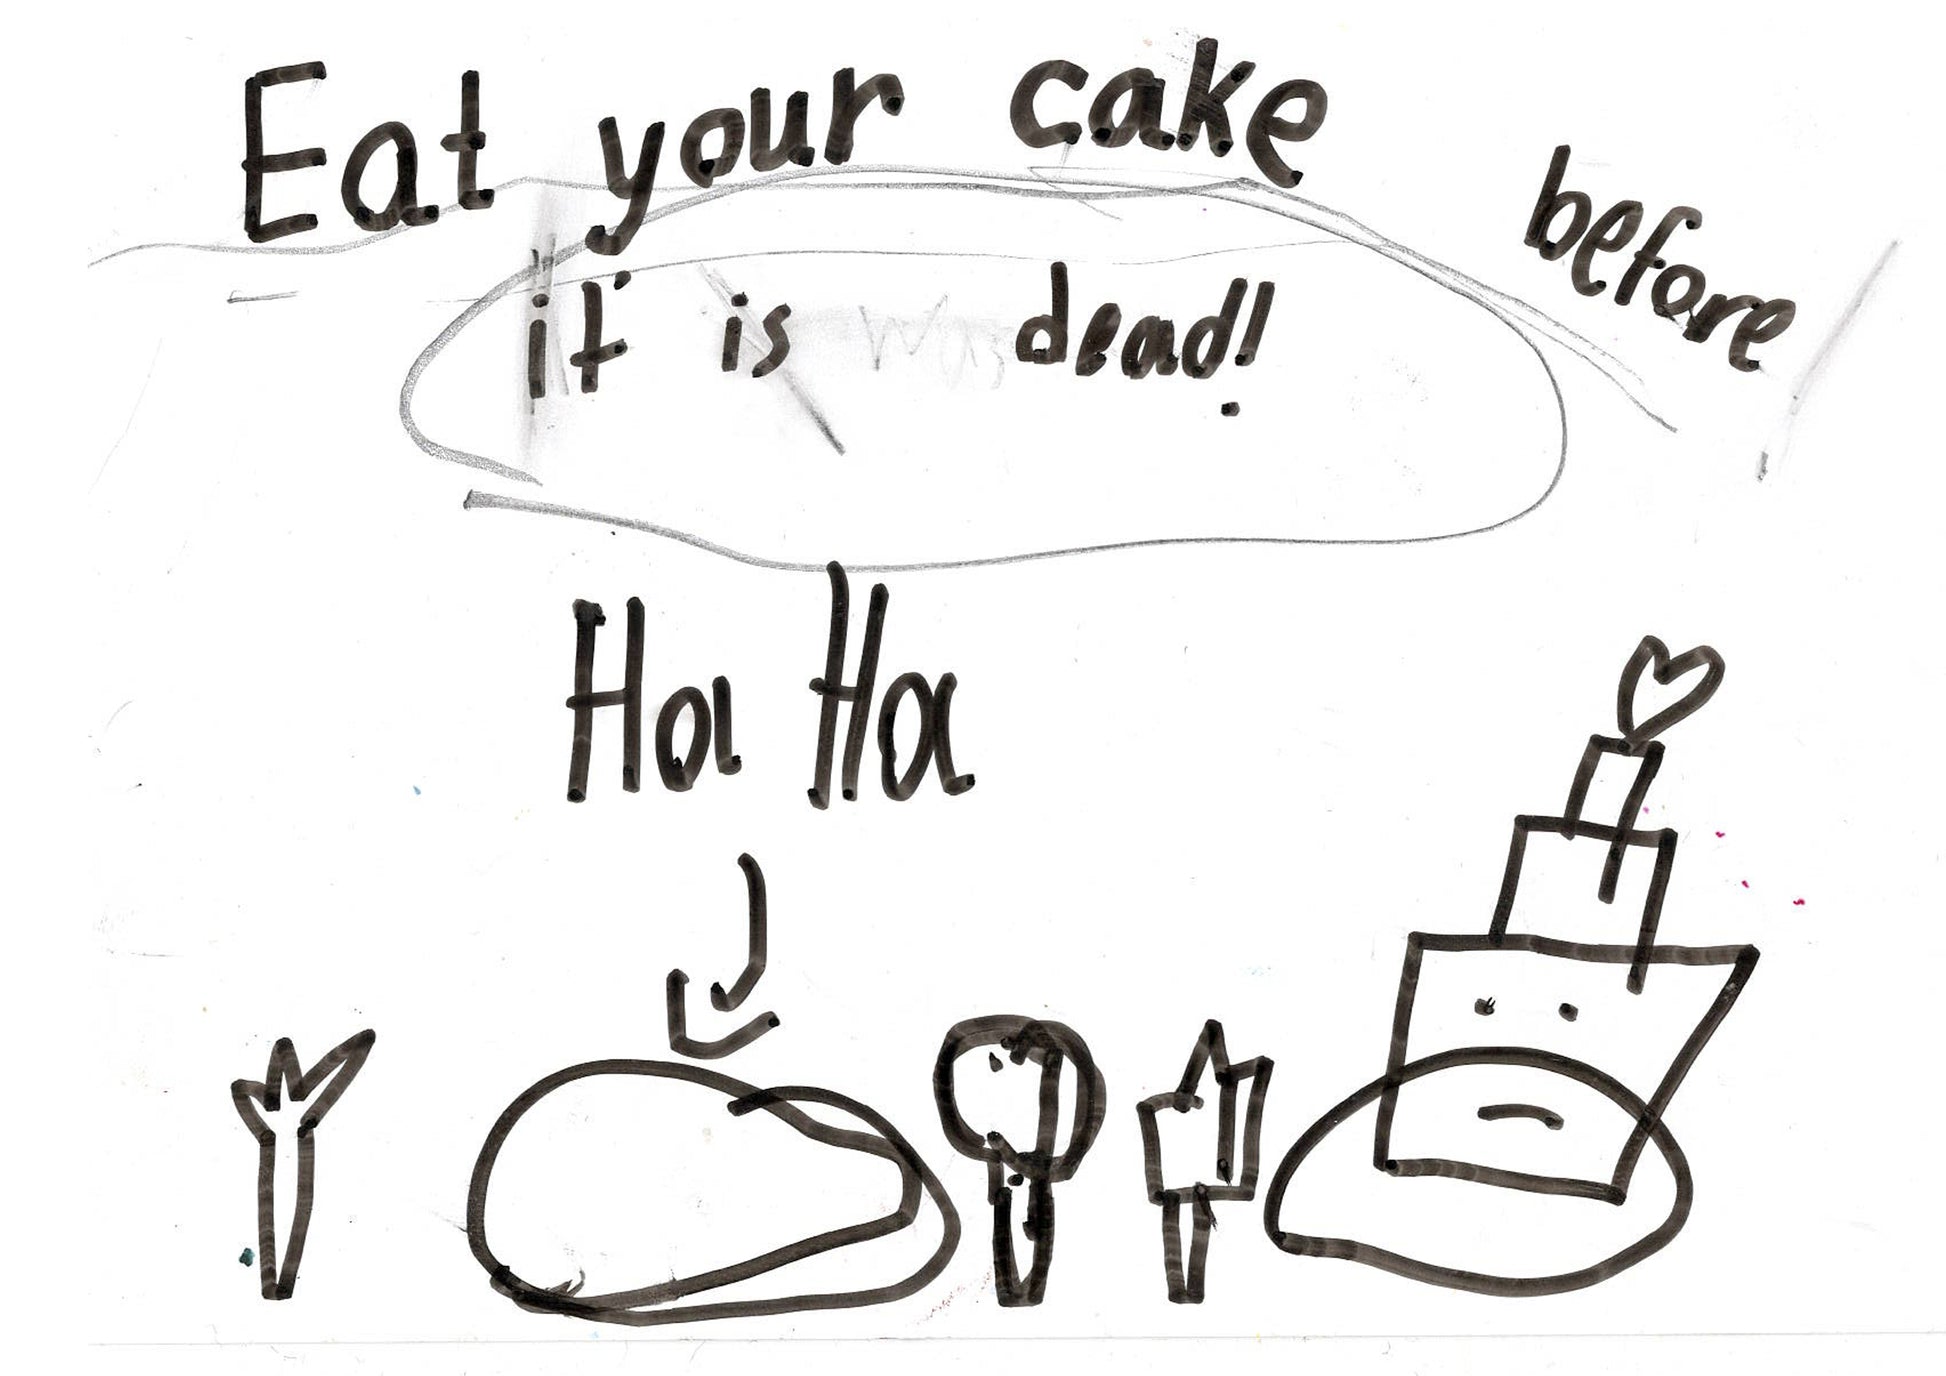 Eat your cake before
it is was dead!
Ha Ha